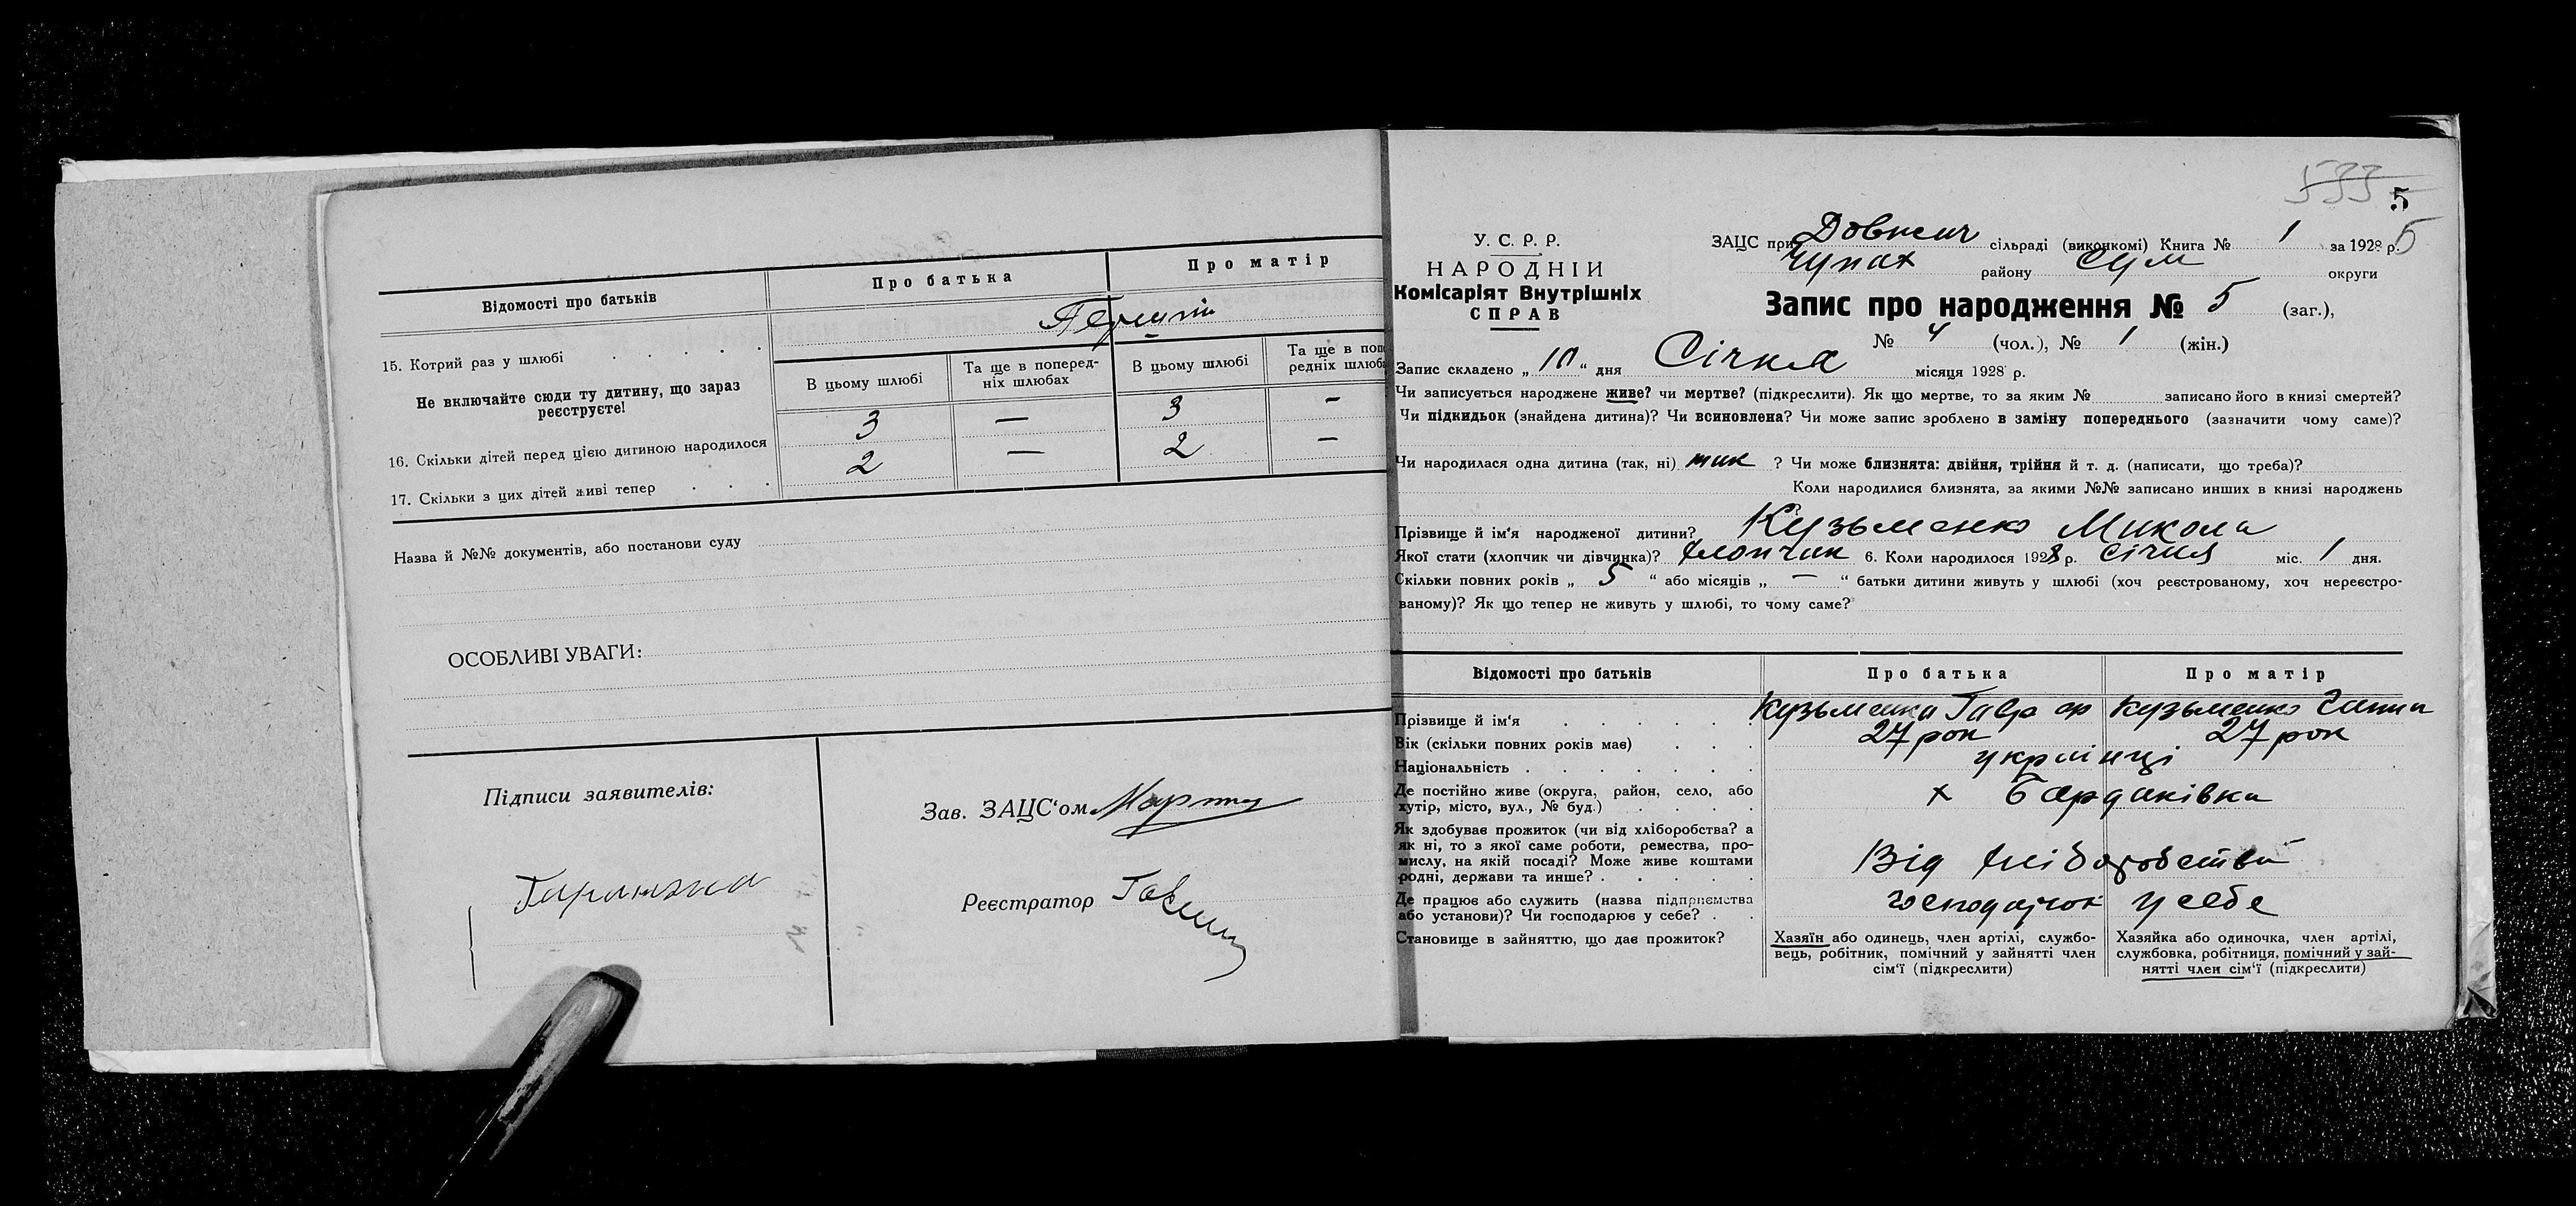 Відомості про батьків
Про батька
Про матір
15. Котрий раз у шлюбі
Перший
Не включайте сюди ту дитину, що зараз реєструєте!
В цьому шлюбі
Та ще в попередніх шлюбах
В цьому шлюбі
Та ще в поп
редніх шлюб
16. Скільки дітей перед цією дитиною народилося
3 — 3 —
17. Скільки з цих дітей живі тепер
2 — 2 —
Назва й №№ документів, або постанови суду
ОСОБЛИВІ УВАГИ:
Підписи заявителів:
Зав. ЗАЦС'ом
Реєстратор
533
5
5
У. С. Р. Р.
НАРОДНІЙ
Комісаріят Внутрішніх
СПРАВ
ЗАЦС при Довжич сільраді (виконкомі) Книга № 1 за 1928 р.
Чупах району Сум округи
Запис про народження № 5 (заг.),
№ 4 (чол.), № 1 (жін.)
Запис складено „ 10 “ дня Січня місяця 1928 р.
Чи записується народжене живе? чи мертве? (підкреслити). Як що мертве, то за яким № записано його в книзі смертей?
Чи підкидьок (знайдена дитина)? Чи всиновлена? Чи може запис зроблено в заміну попереднього (зазначити чому саме)?
Чи народилася одна дитина (так, ні) так ? Чи може близнята: двійня, трійня й т. д. (написати, що треба)?
Коли народилися близнята, за якими №№ записано инших в книзі народжень
Прізвище й ім'я народженої дитини? Кузьменко Микола
Якої стати (хлопчик чи дівчинка)? хлопчик 6. Коли народилося 1928 р. січня міс. 1 дня.
Скільки повних років „ 5 “ або місяців „ — “ батьки дитини живуть у шлюбі (хоч реєстрованому, хоч нереєстро-
ваному)? Як що тепер не живуть у шлюбі, то чому саме?
Відомості про батьків
Про батька
Про матір
Прізвище й ім'я
Кузьменко
Кузьменко
Вік (скільки повних років має)
27 рок
27 рок
Національність
українці
Де постійно живе (округа, район, село, або
хутір, місто, вул., № буд.)
х Бардаківка
Як здобуває прожиток (чи від хліборобства? а
як ні, то з якої саме роботи, ремества, про-
мислу, на якій посаді? Може живе коштами
родні, держави та инше?
Від хліборобства
Де працює або служить (назва підприємства
або установи)? Чи господарює у себе?
у себе
Становище в зайняттю, що дає прожиток?
Хазяїн або одинець, член артілі, службо-
вець, робітник, помічний у зайнятті член
сім'ї (підкреслити)
Хазяйка або одиночка, член артілі,
службовка, робітниця, помічний у зай-
нятті член сім'ї (підкреслити)